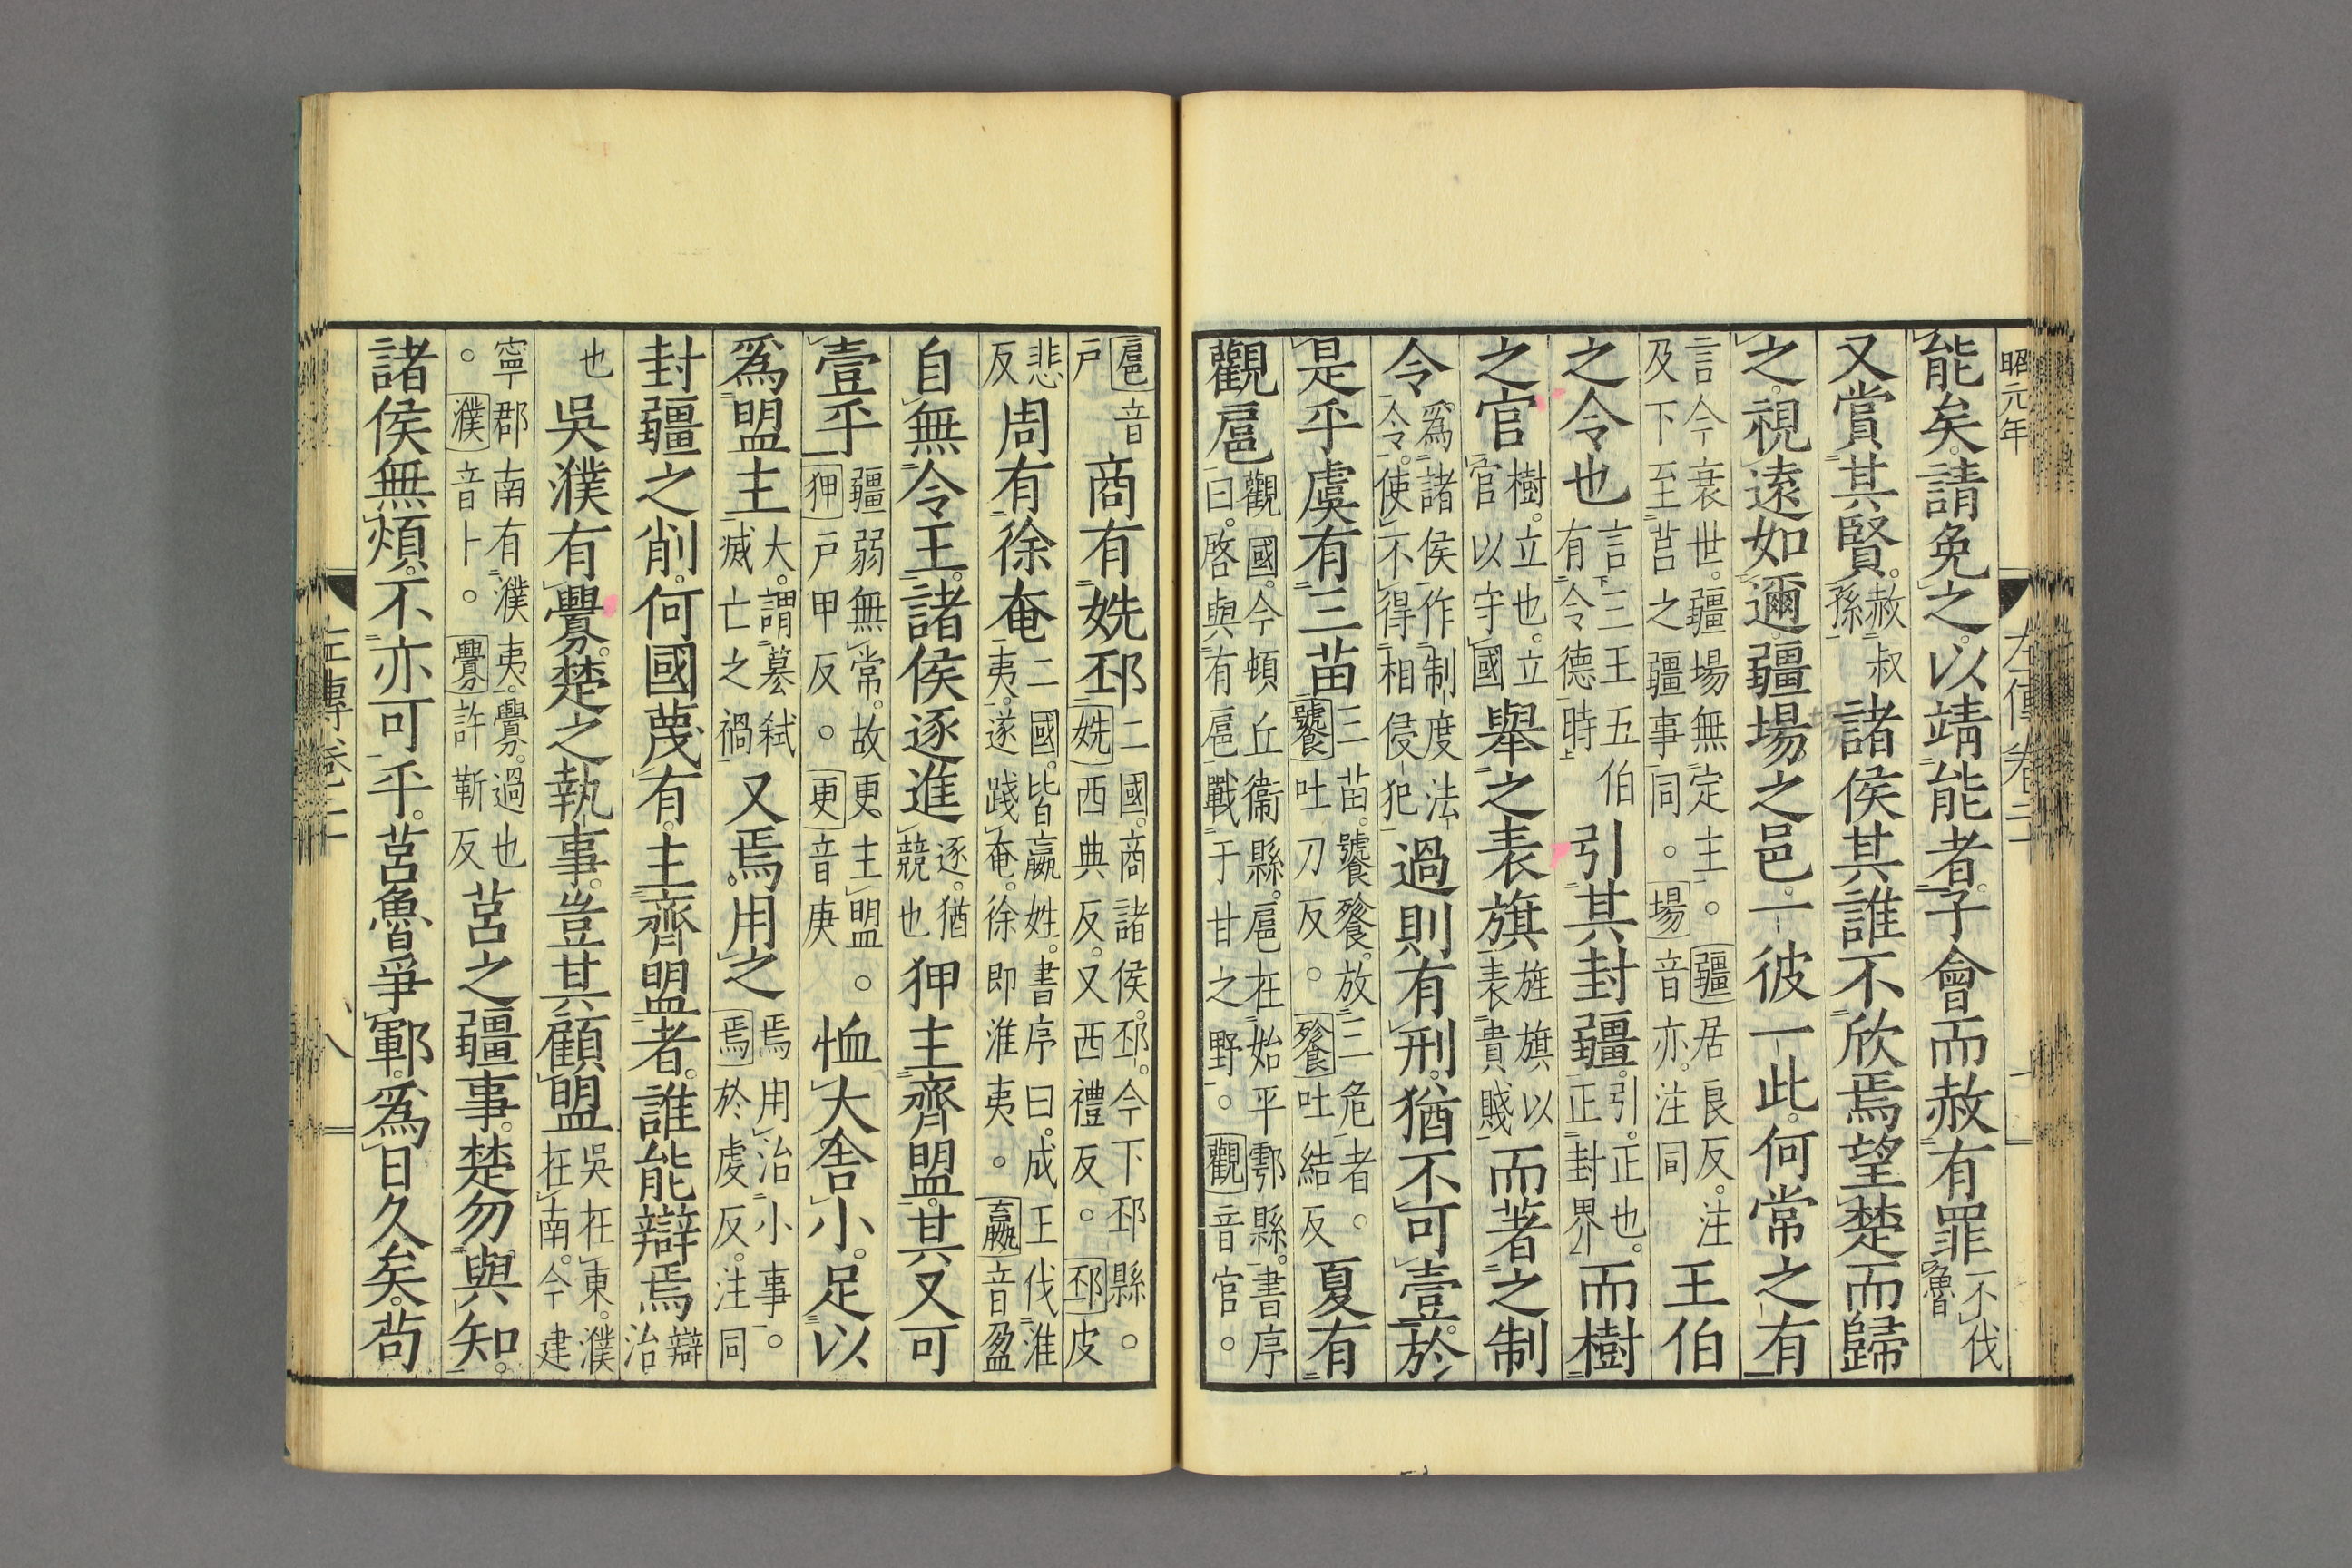 昭元年
左傳卷二十
能矣。請免之。以靖能者。子會而赦有罪不伐魯
又賞其賢。赦叔孫諸侯其誰不欣焉望楚而歸
之。視遠如邇。疆場之邑。一彼一此。何常之有
言今衰世。疆場無定主。。疆居良反。注及下至莒之疆事同。。場音亦。注同王伯
之令也言三王五伯有令德時引其封疆。引。正也。正封界而樹
之官樹。立也。立官以守國舉之表旗旌旗以表貴賤而著之制
令爲諸侯作制度法令。使不得相侵犯過則有刑。猶不可壹。於
是乎虞有三苗三苗。饕餮。放三危者。饕吐刀反。餮吐結反夏有
觀扈觀國。今頓丘衞縣。扈在始平鄠縣。書序曰。啓與有扈戰于甘之野。觀音官。
扈音戶商有姺邳二國。商諸侯。邳。今下邳縣。姺西典反。又西禮反。邳皮
悲反周有徐奄二國。皆嬴姓。書序曰。成王伐淮夷。遂踐奄。徐即淮夷。嬴音盈
自無令王。諸侯逐進逐。猶競也狎主齊盟。其又可
壹乎疆弱無常。故更主盟。狎戶甲反。更音庚恤大舍小。足以
爲盟主大。謂篡弒滅亡之禍又焉。用之焉用治小事。焉於虔反。注同
封疆之削。何國蔑有。主齊盟者。誰能辯焉辯治
也吳濮有釁。楚之執事。豈其顧盟吳在東。濮在南。今建
寧郡南有濮夷。釁。過也。濮音卜。釁許靳反莒之疆事。楚勿與知。
諸侯無煩。不亦可乎。莒魯爭鄆。爲日久矣。苟
左傳卷二十
八